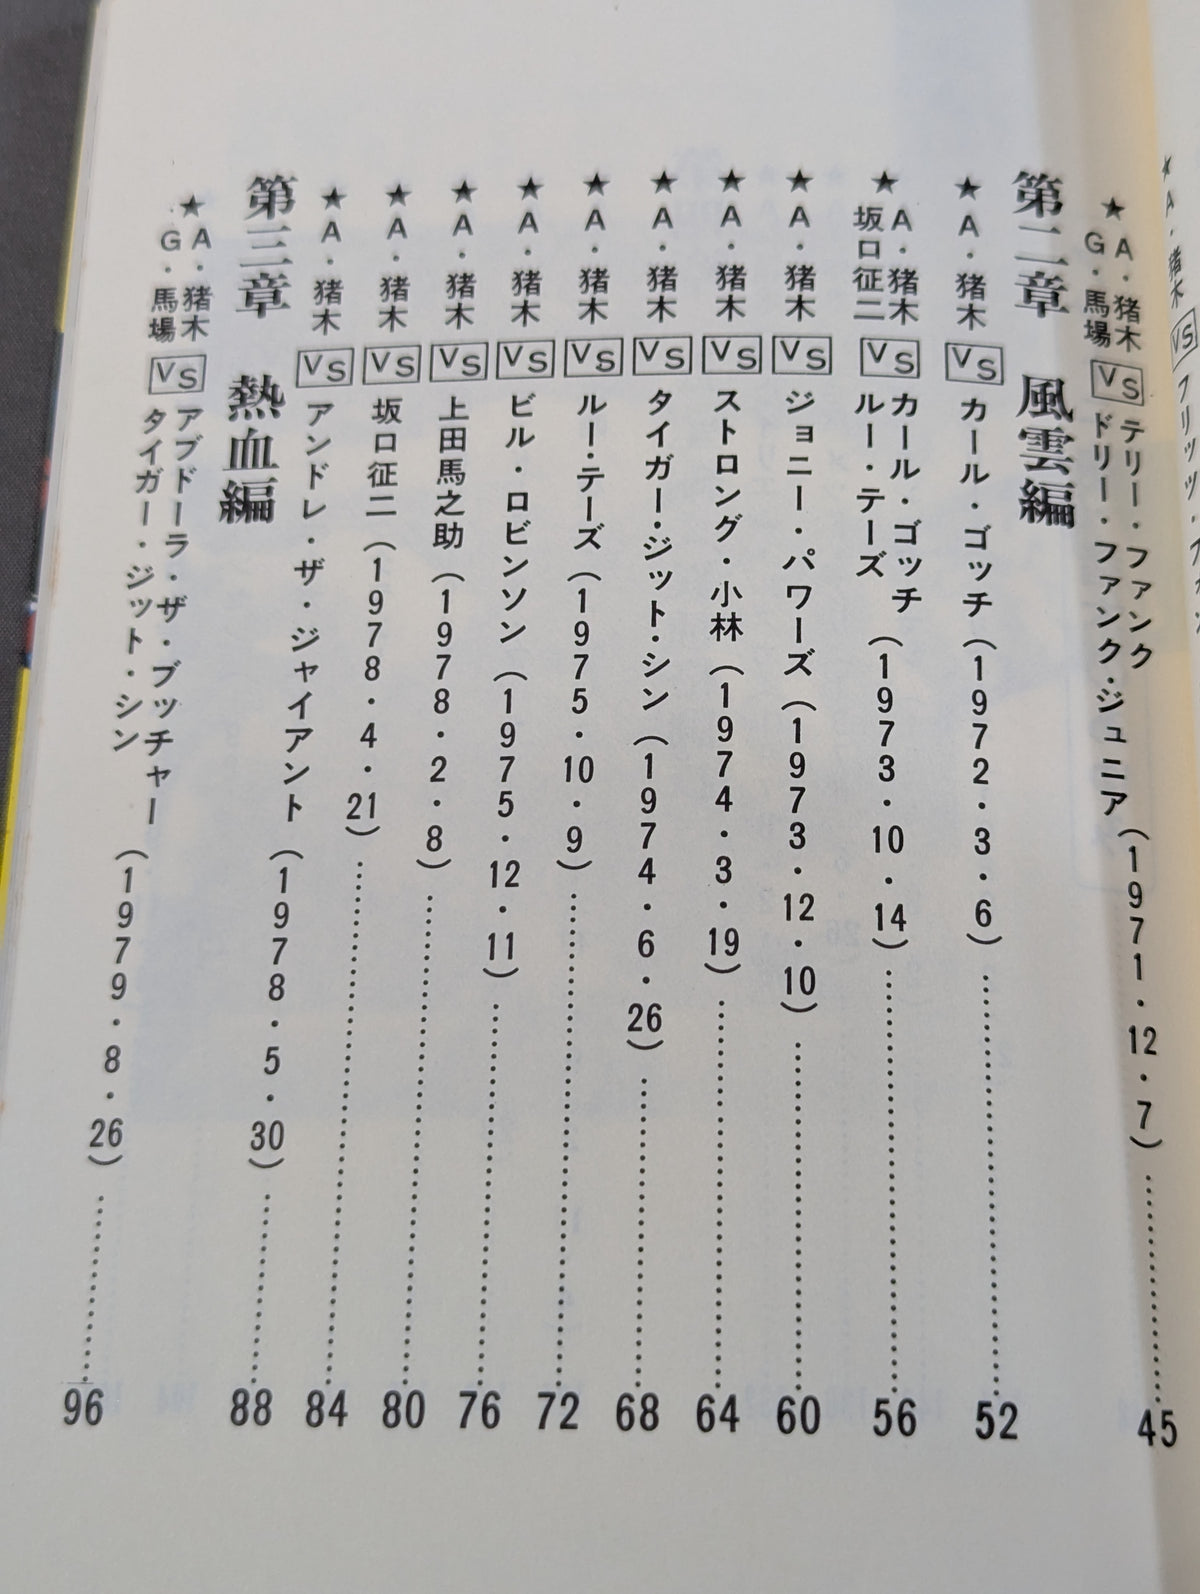 ★A・猪木 VS フリッツ・
★A・猪木 G・馬場 VS テリー・ファンク ドリー・ファンク・ジュニア（1971・12・7）……45
第二章　風雲編
★A・猪木 VS カール・ゴッチ（1972・3・6）……52
★A・猪木 坂口征二 VS カール・ゴッチ ルー・テーズ（1973・10・14）……56
★A・猪木 VS ジョニー・パワーズ（1973・12・10）……60
★A・猪木 VS ストロング・小林（1974・3・19）……64
★A・猪木 VS タイガー・ジット・シン（1974・6・26）……68
★A・猪木 VS ルー・テーズ（1975・10・9）……72
★A・猪木 VS ビル・ロビンソン（1975・12・11）……76
★A・猪木 VS 上田馬之助（1978・2・8）……80
★A・猪木 VS 坂口征二（1978・4・21）……84
★A・猪木 VS アンドレ・ザ・ジャイアント（1978・5・30）……88
第三章　熱血編
★A・猪木 G・馬場 VS アブドーラ・ザ・ブッチャー タイガー・ジット・シン（1979・8・26）……96